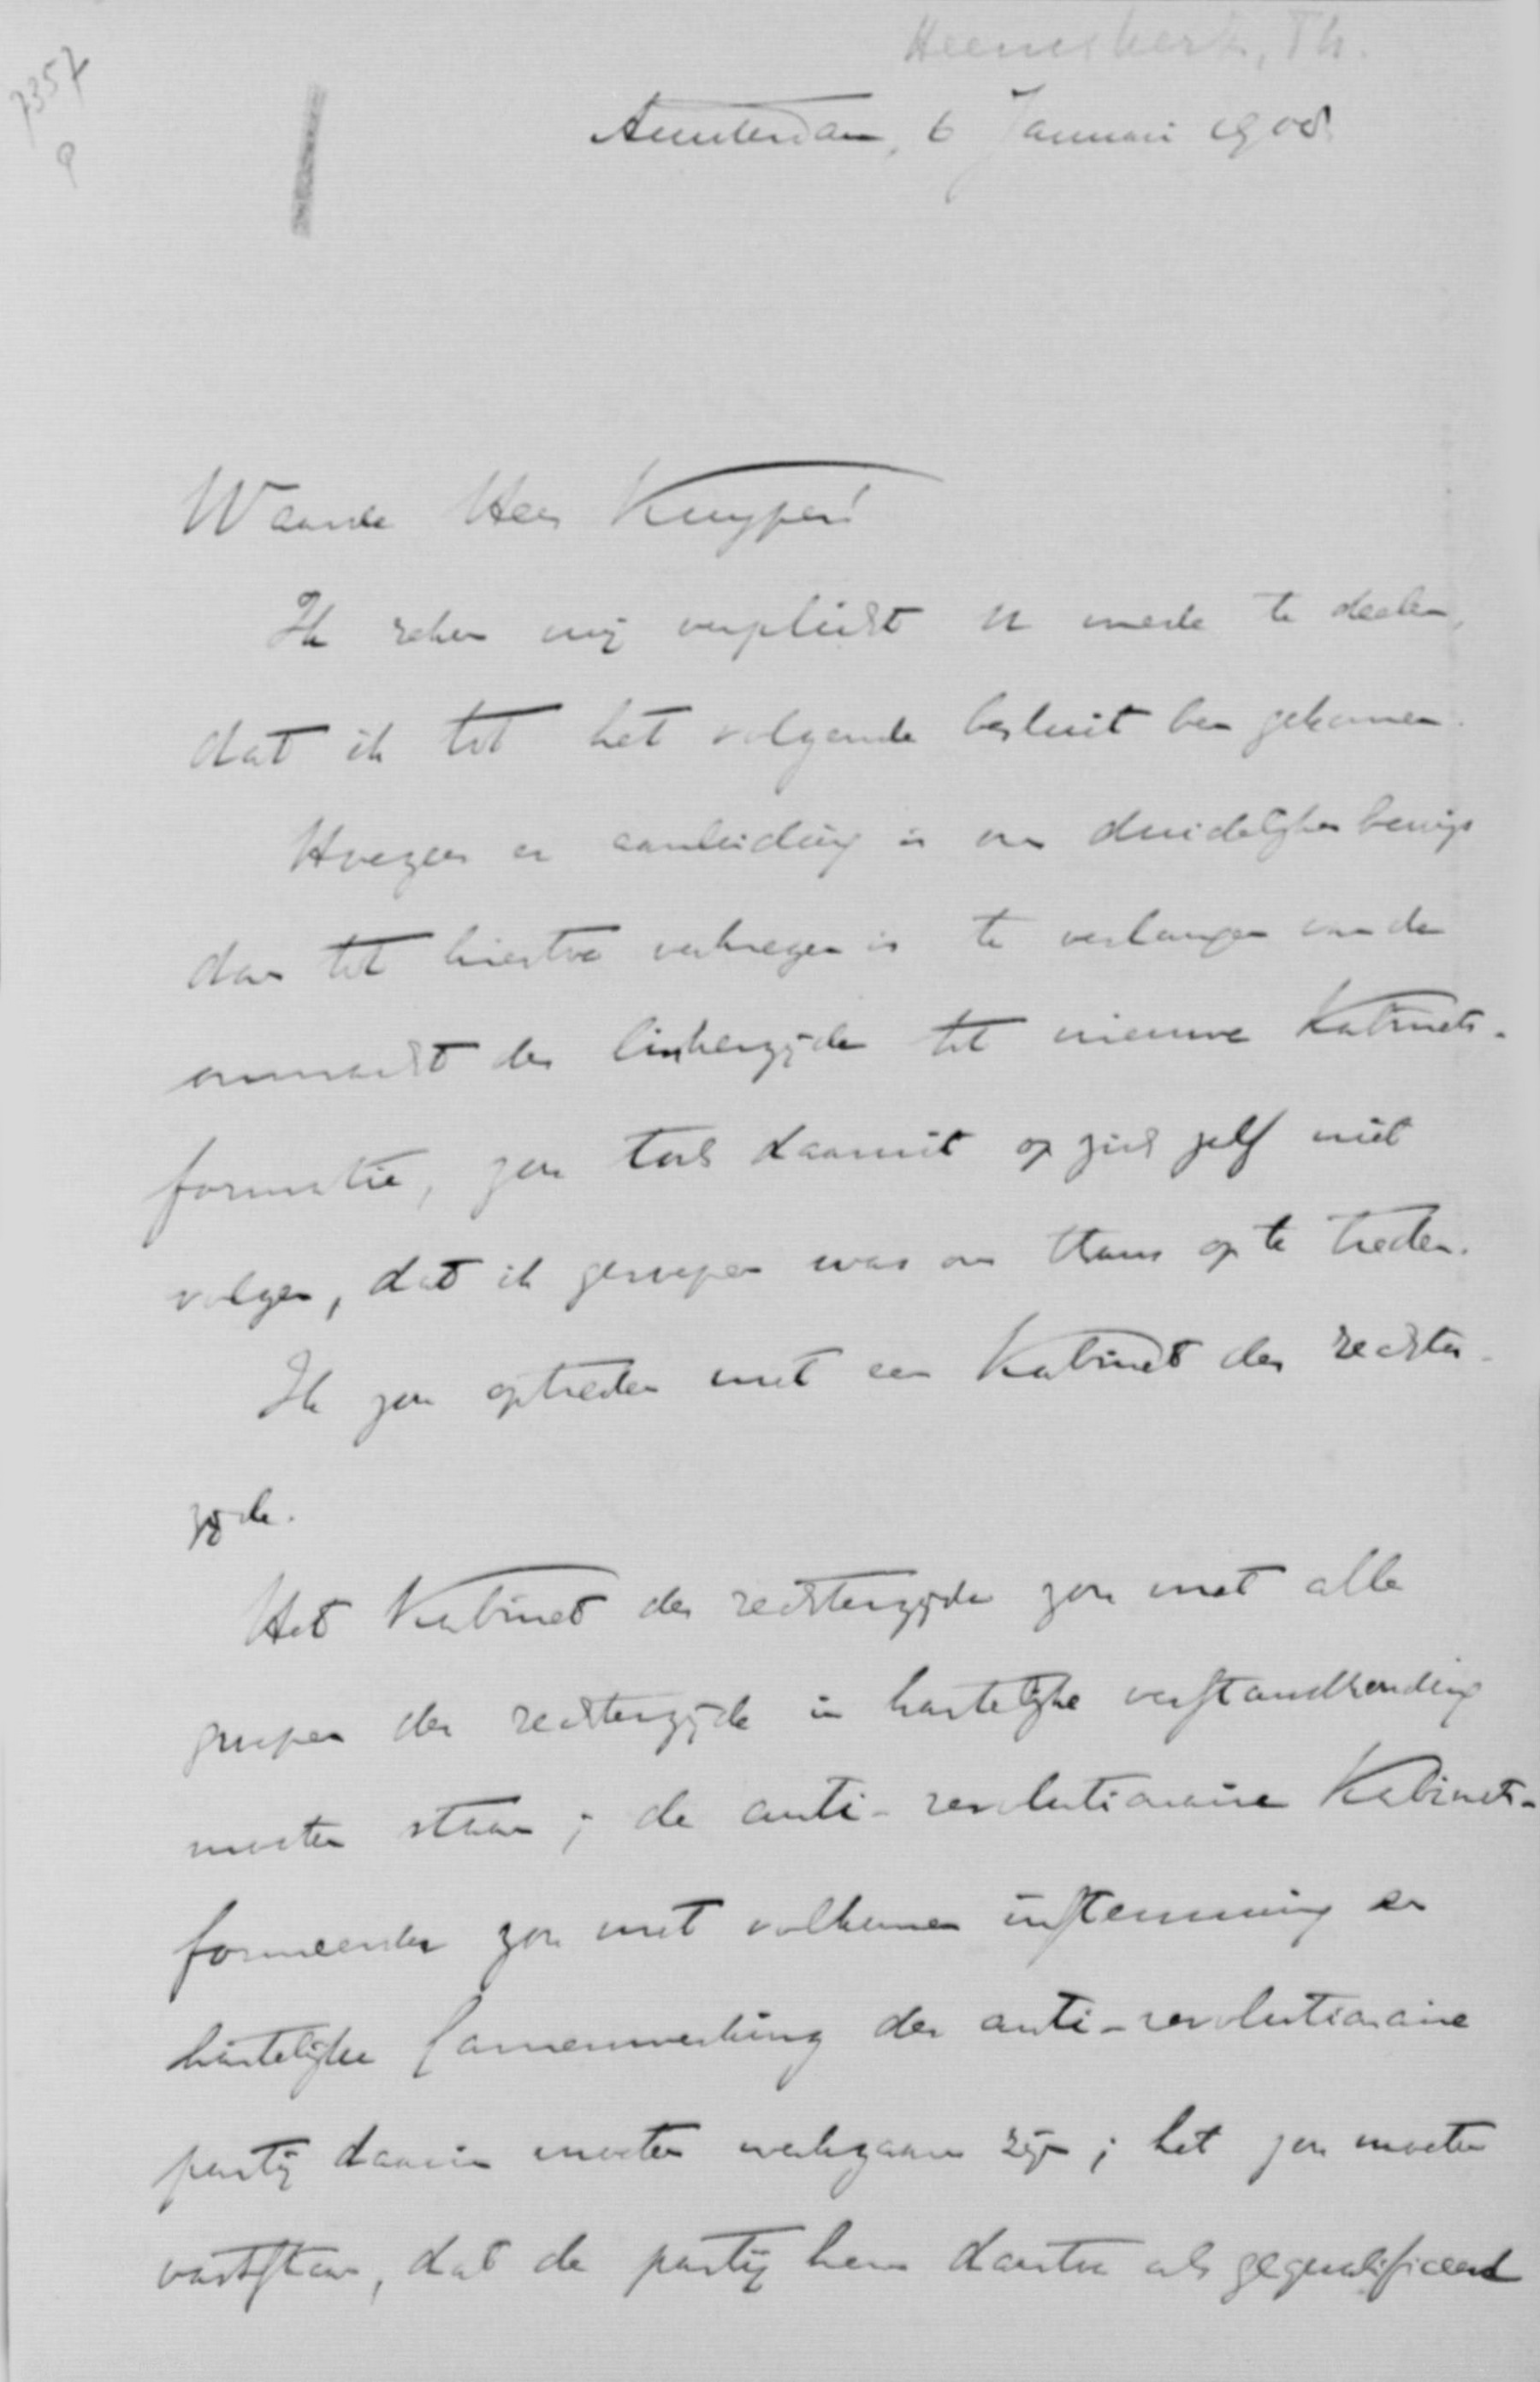 Heemskerk, Th.
7357
Amsterdam, 6 Januari 1908
Waarde Heer Kuyper!
Ik reken mij verplicht U mede te deelen,
dat ik tot het volgende besluit ben gekomen.
Hoezeer er aanleiding is om duidelijker bewijs
dan tot hiertoe verkregen is te verlangen van de
onmacht der linkerzijde tot nieuwe Kabinets-
formatie, zou toch daaruit op zich zelf niet
volgen, dat ik geroepen was om thans op te treden.
Ik zou optreden met een Kabinet der rechter-
zijde.
Het Kabinet der rechterzijde zou met alle
groepen der rechterzijde in hartelijke verstandhouding
moeten staan; de anti-revolutionaire Kabinets-
formeerder zou met volkomen instemming en
hartelijke samenwerking der anti-revolutionaire
partij daarin moeten werkzaam zijn; het zou moeten
vaststaan, dat de partij hem daartoe als gequalificeerd